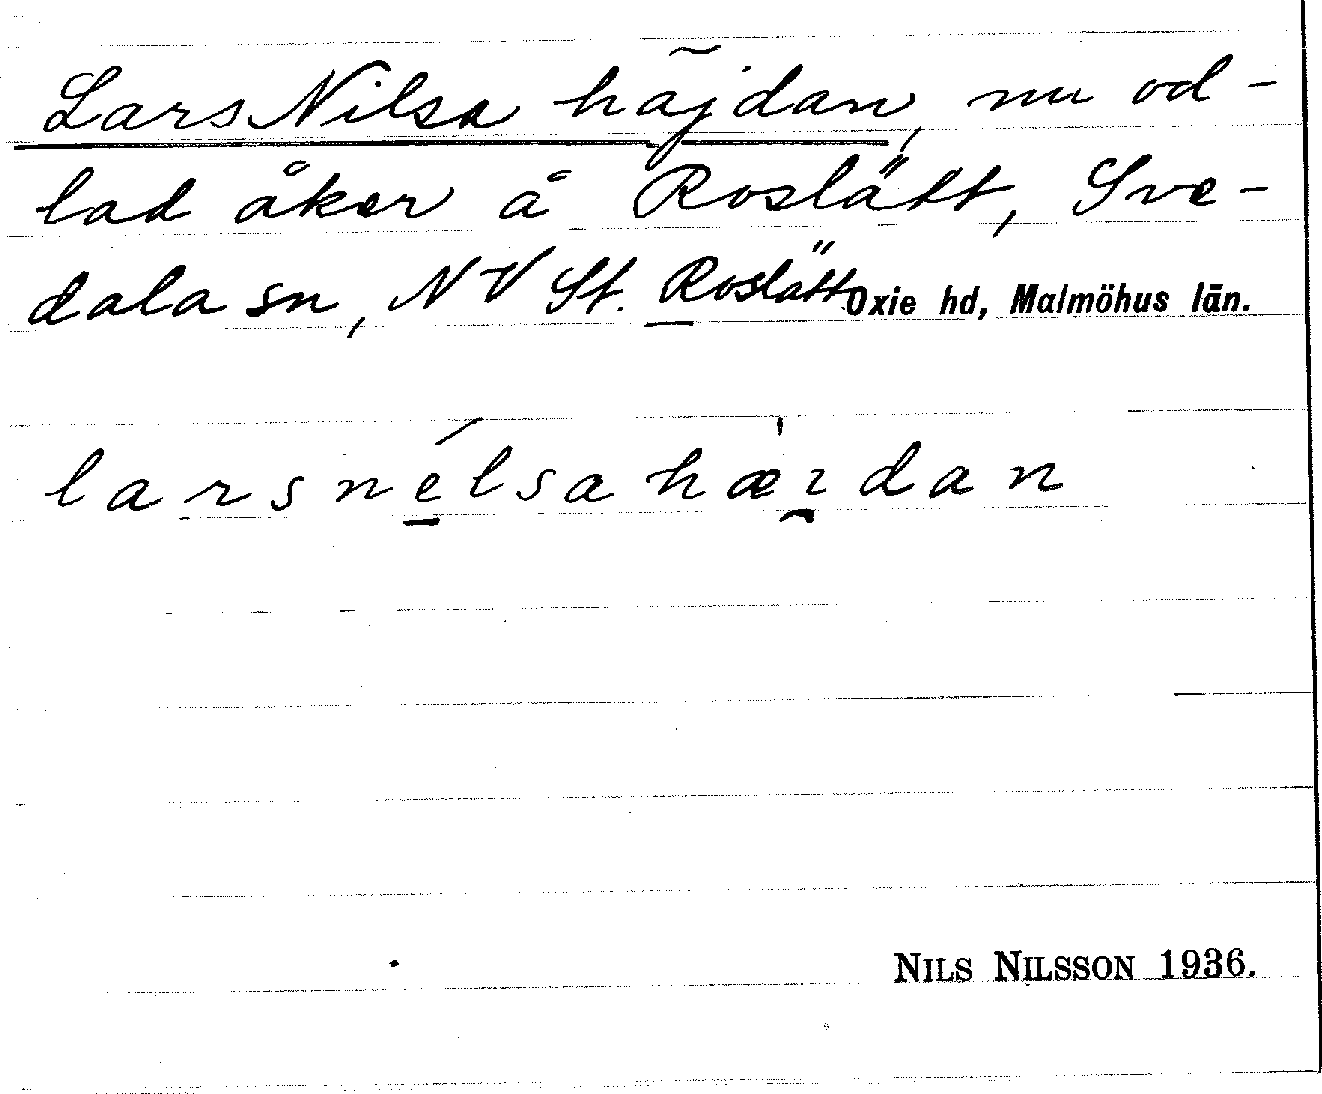 Lars Nilsa häjdan, nu od-
lad åker å Roslätt, Sve-
dala sn, NV St. Roslätt Oxie hd, Malmöhus län.
larsnélsahæ̍ɪdan
NILS NILSSON 1936.